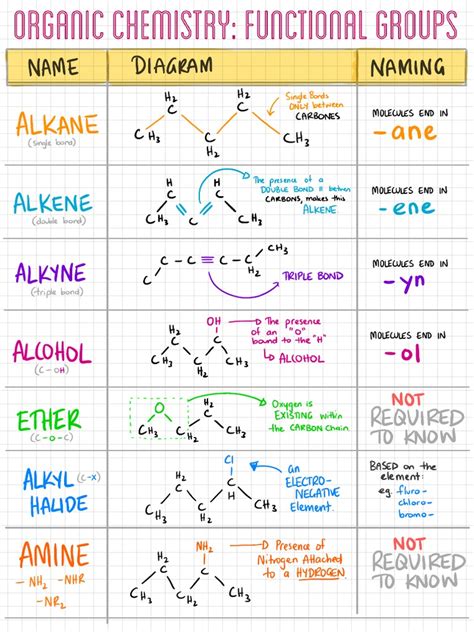 ORGANIC CHEMISTRY: FUNCTIONAL GROUPS
NAME DIAGRAM NAMING
ALKANE
(single bond)
H₂ H₂
C C
CH₃ C C CH₃
H₂ H₂
Single Bonds
ONLY between
CARBONES
MOLECULES END IN
-ane
ALKENE
(double bond)
H H
C C
CH₃ C C CH₃
The presence of a
DOUBLE BOND
CARBONS, makes this
ALKENE
MOLECULES END IN
-ene
ALKYNE
(triple bond)
C - C ≡ C - C
H₂
CH₃
TRIPLE BOND
MOLECULES END IN
-yn
ALCOHOL
(C-OH)
OH
H₂
C C
CH₃ C C CH₃
H₂
The presence
of an "O"
bound to the "H"
↳ ALCOHOL
MOLECULES END IN
-ol
ETHER
(C-O-C)
O H₂
C
CH₃ C CH₃
H₂
Oxygen is
EXISTING within
the CARBON Chain
NOT
REQUIRED
TO KNOW
ALKYL (C-X)
HALIDE
Cl
H₂
C C
H
CH₃ C C CH₃
H₂
an
ELECTRO-
NEGATIVE
Element.
BASED on the
element:
eg. fluro-
chloro-
bromo-
AMINE
- NH₂ - NHR
- NR₂
NH₂
H₂
C C
CH₃ C C CH₃
H₂
Presence of
Nitrogen Attached
to a HYDROGEN
NOT
REQUIRED
TO KNOW